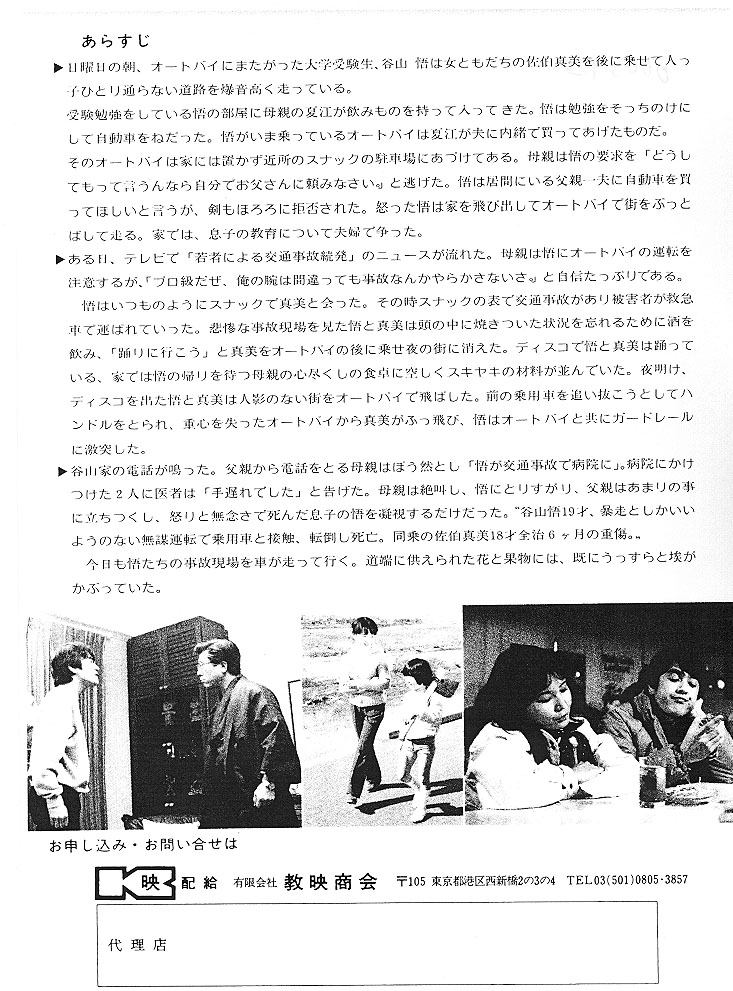 あらすじ
▶日曜日の朝、オートバイにまたがった大学受験生、谷山 悟は女ともだちの佐伯真美を後に乗せて人っ
子ひとり通らない道路を爆音高く走っている。
受験勉強をしている悟の部屋に母親の夏江が飲みものを持って入ってきた。悟は勉強をそっちのけに
して自動車をねだった。悟がいま乗っているオートバイは夏江が夫に内緒で買ってあげたものだ。
そのオートバイは家には置かず近所のスナックの駐車場にあづけてある。母親は悟の要求を「どうし
てもって言うんなら自分でお父さんに頼みなさい』と逃げた。悟は居間にいる父親一夫に自動車を買
ってほしいと言うが、剣もほろろに拒否された。怒った悟は家を飛び出してオートバイで街をぶっと
ばして走る。家では、息子の教育について夫婦で争った。
▶ある日、テレビで「若者による交通事故続発」のニュースが流れた。母親は悟にオートバイの運転を
注意するが、「プロ級だぜ、俺の腕は間違っても事故なんかやらかさないさ』と自信たっぷりである。
悟はいつものようにスナックで真美と会った。その時スナックの表で交通事故があり被害者が救急
車で運ばれていった。悲惨な事故現場を見た悟と真美は頭の中に焼きついた状況を忘れるために酒を
飲み、「踊りに行こう」と真美をオートバイの後に乗せ夜の街に消えた。ディスコで悟と真美は踊って
いる、家では悟の帰りを待つ母親の心尽くしの食卓に空しくスキヤキの材料が並んでいた。夜明け、
ディスコを出た悟と真美は人影のない街をオートバイで飛ばした。前の乗用車を追い抜こうとしてハ
ンドルをとられ、重心を失ったオートバイから真美がふっ飛び、悟はオートバイと共にガードレール
に激突した。
▶谷山家の電話が鳴った。父親から電話をとる母親はぼう然とし「悟が交通事故で病院に」。病院にかけ
つけた2人に医者は「手遅れでした」と告げた。母親は絶叫し、悟にとりすがり、父親はあまりの事
に立ちつくし、怒りと無念さで死んだ息子の悟を凝視するだけだった。〝谷山悟19才、暴走としかいい
ようのない無謀運転で乗用車と接触、転倒し死亡。同乗の佐伯真美18才全治6ヶ月の重傷。〟
今日も悟たちの事故現場を車が走って行く。道端に供えられた花と果物には、既にうっすらと埃が
かぶっていた。
お申し込み・お問い合せは
K映 配給 有限会社 教映商会 〒105 東京都港区西新橋2の3の4 TEL03(501)0805・3857
代理店